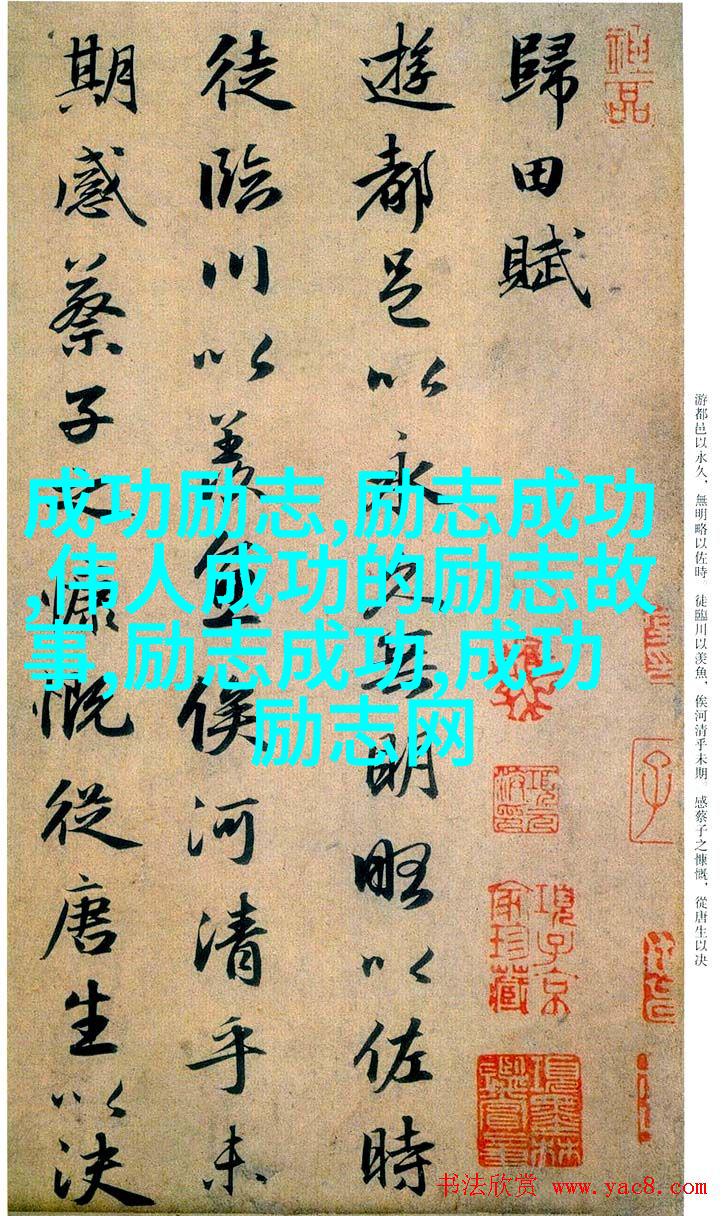 歸田賦
遊都邑以永久無明略以佐時
徒臨川以羨魚俟河清乎未
期感蔡子之慷慨從唐生以決
成功励志,励志成功
,伟人成功的励志故
事,励志成功,成功
励志网
游都邑以永久，無明略以佐時。徒臨川以羨魚，俟河清乎未期。感蔡子之慷慨，從唐生以决
神品
項子京
家珍藏
項墨林
鑑賞章
书法欣赏 www.yac8.com